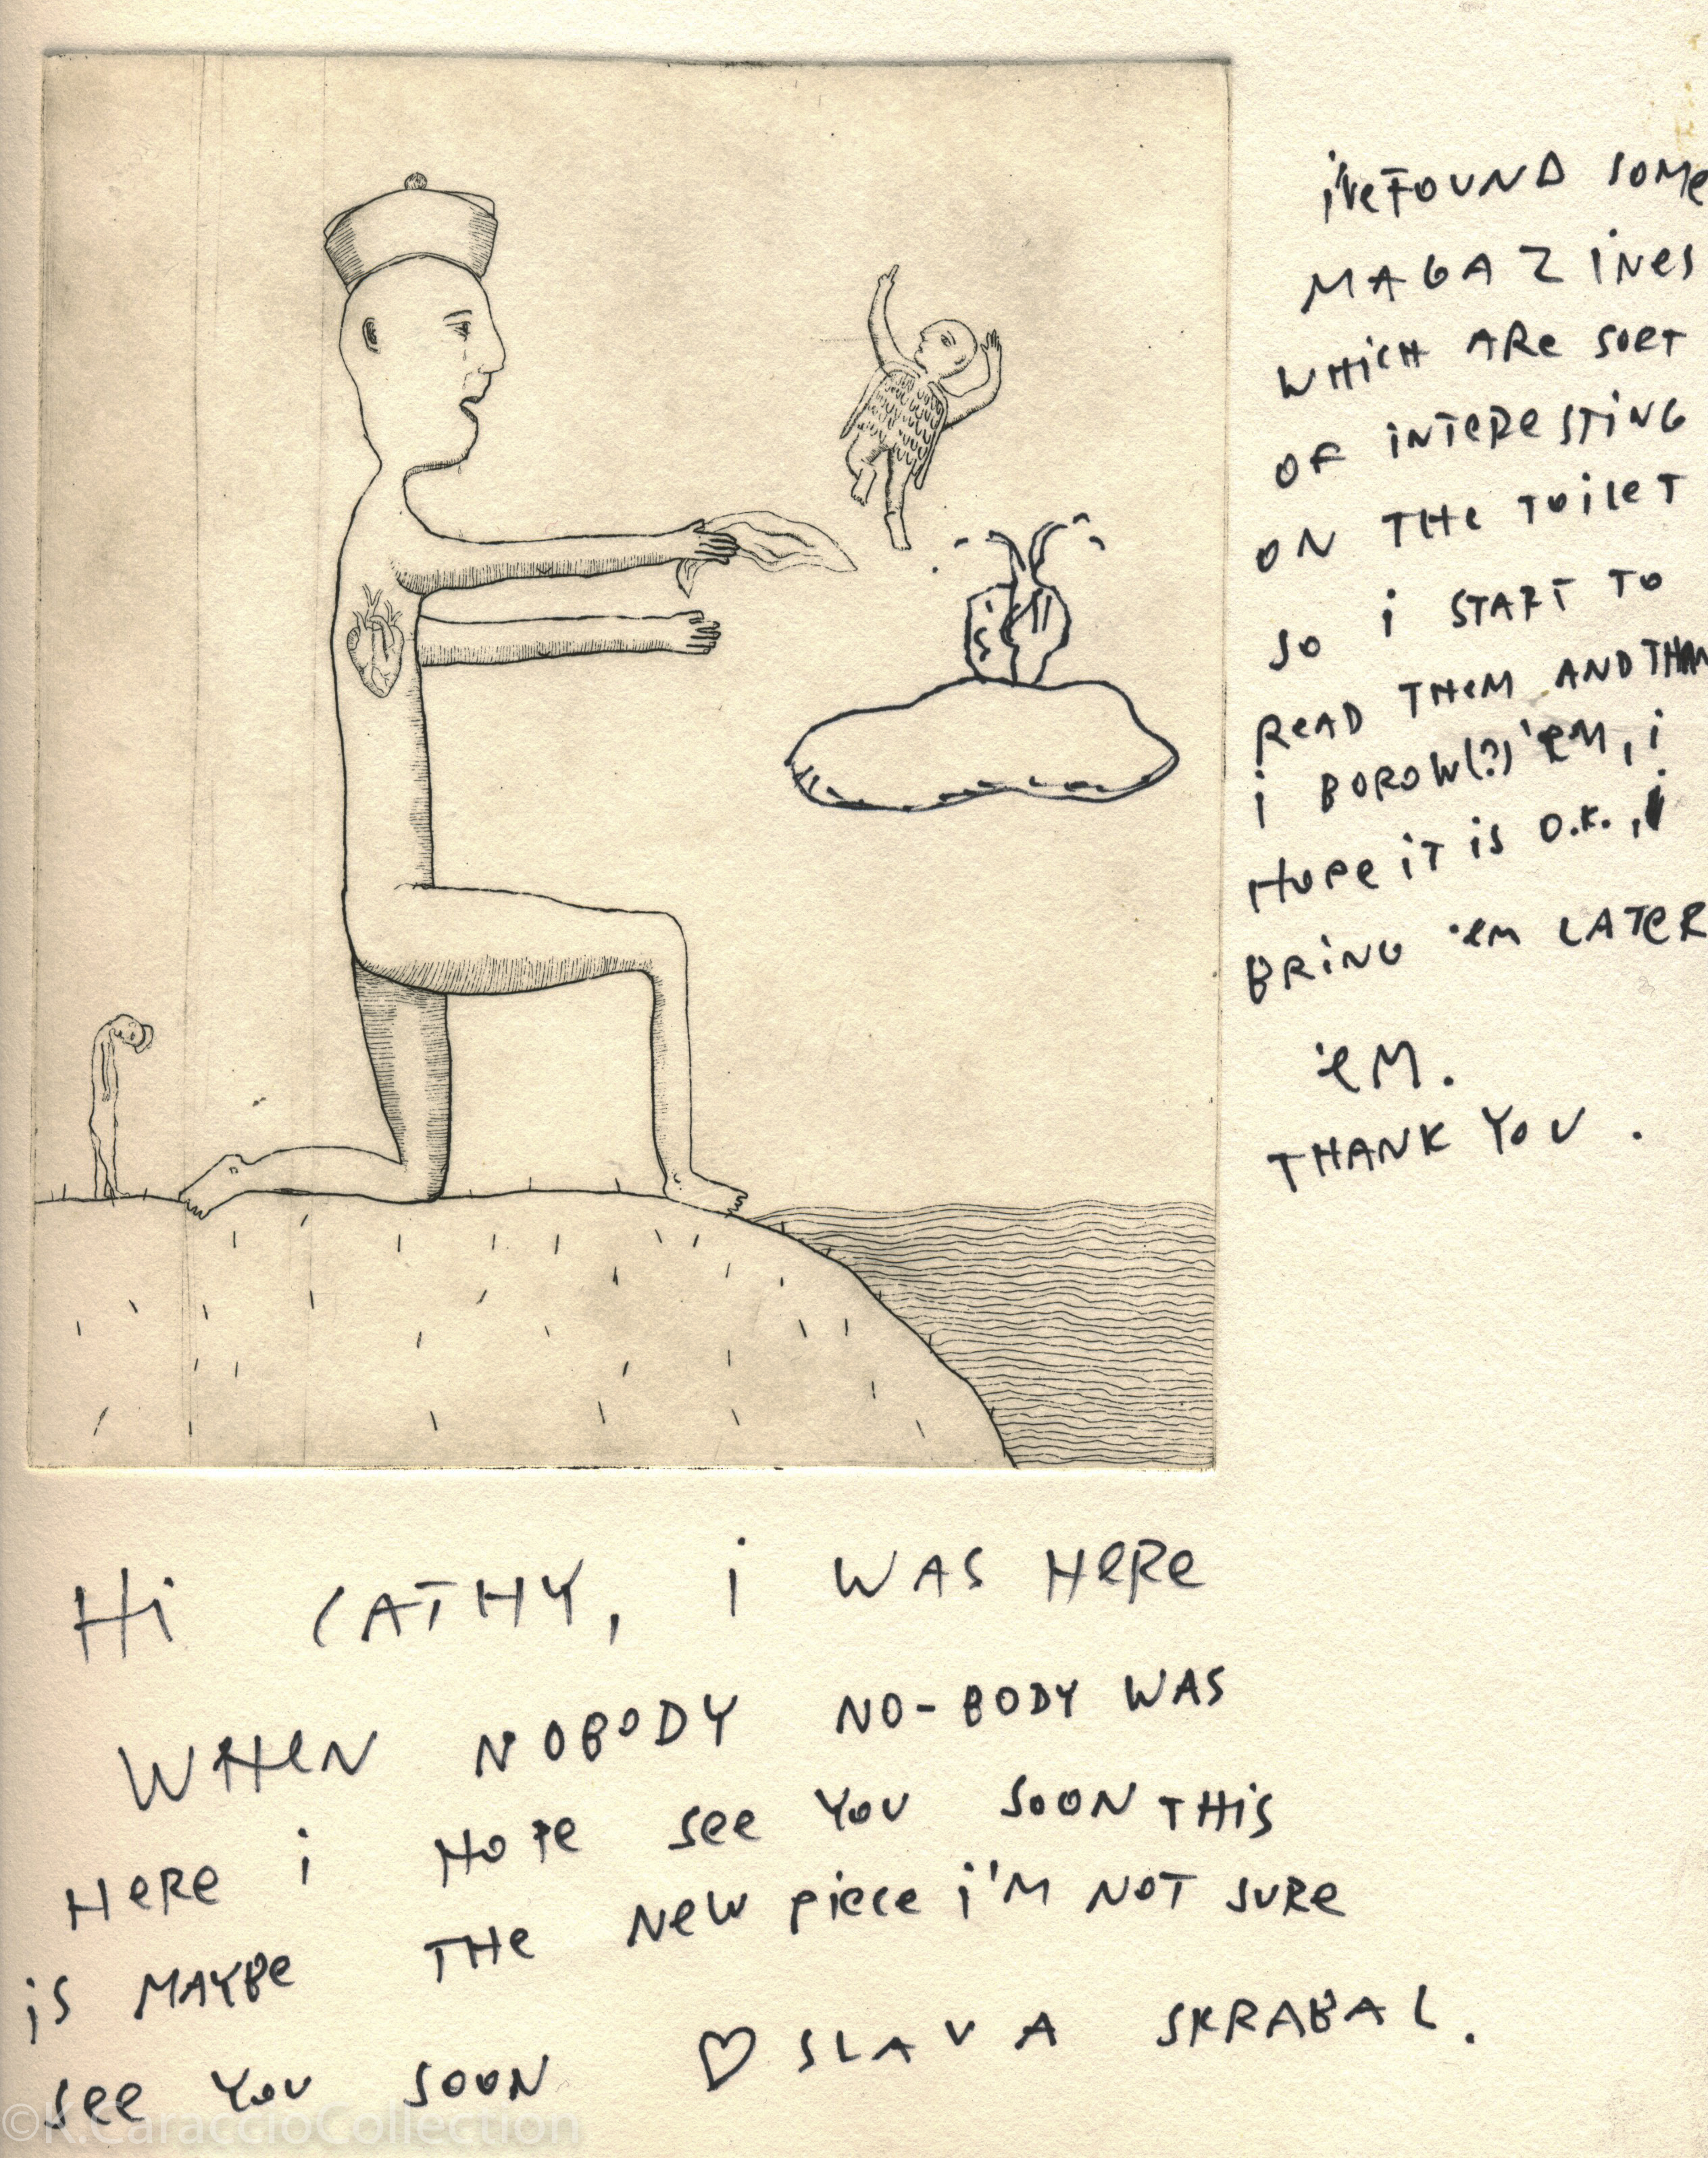 i'veFOUND SOMe
MAGAZINes
WHICH ARe SORT
OF iNTeResTiNG
ON THe TOileT
SO i START TO
ReAD THeM AND THAN
i BOROW(?) 'eM, i
HOPe iT iS O.K., i
BRiNG 'eM LATeR
'eM.
THANK YOU.
Hi CATHY, i WAS HeRe
WHeN NOBODY NO-BODY WAS
HeRe i HOPe See YOU SOON THiS
iS MAYBe THe NeW piece i'M NOT SURe
See YOU SOON ♡ SLAVA SKRABAL.
©K.CaraccioCollection